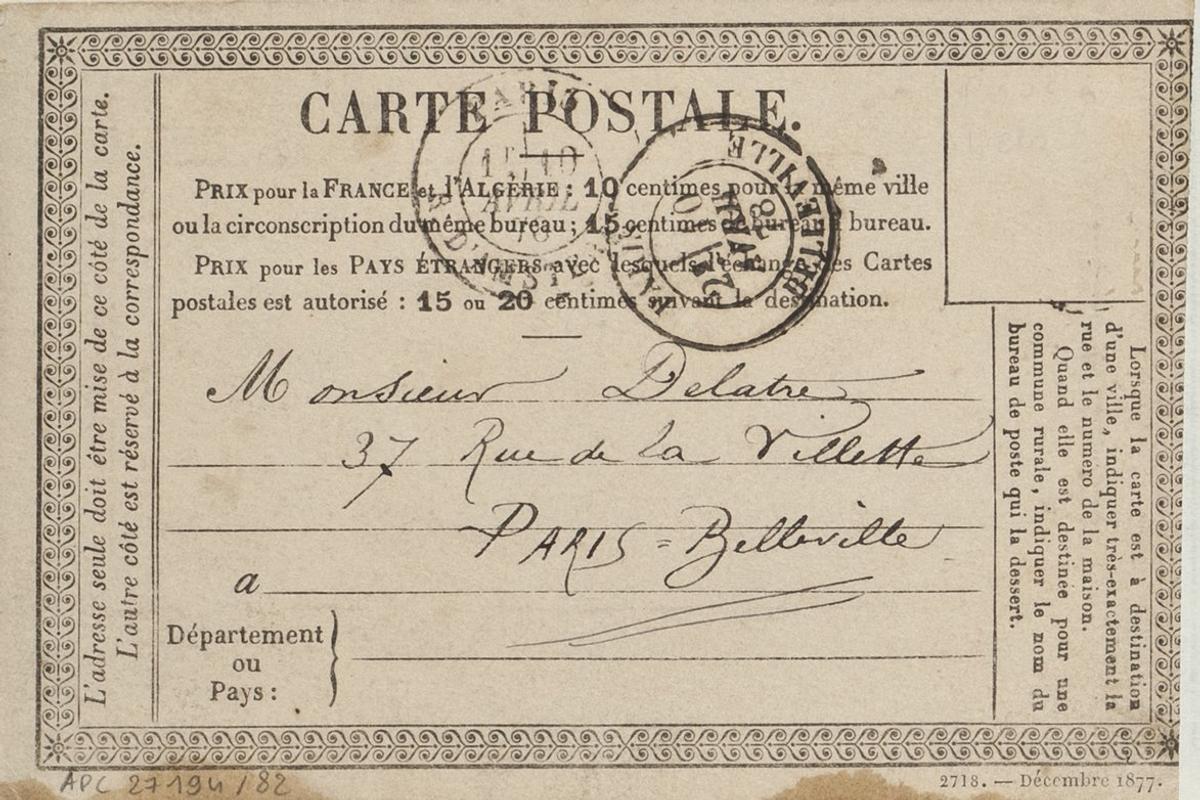 CARTE POSTALE.
PRIX pour la FRANCE et l'ALGÉRIE : 10 centimes pour la même ville
ou la circonscription du même bureau ; 15 centimes de bureau à bureau.
PRIX pour les PAYS ÉTRANGERS avec lesquels l'échange des Cartes
postales est autorisé : 15 ou 20 centimes suivant la destination.
PARIS
AVRIL
78
PARIS
BELLEVILLE
Monsieur Delatre
37 Rue de la Villette
PARIS = Belleville
a
Département
ou
Pays :
L'adresse seule doit être mise de ce côté de la carte.
L'autre côté est réservé à la correspondance.
Lorsque la carte est à destination
d'une ville, indiquer très-exactement la
rue et le numéro de la maison.
Quand elle est destinée pour une
commune rurale, indiquer le nom du
bureau de poste qui la dessert.
APC 27194/82
2718. — Décembre 1877.